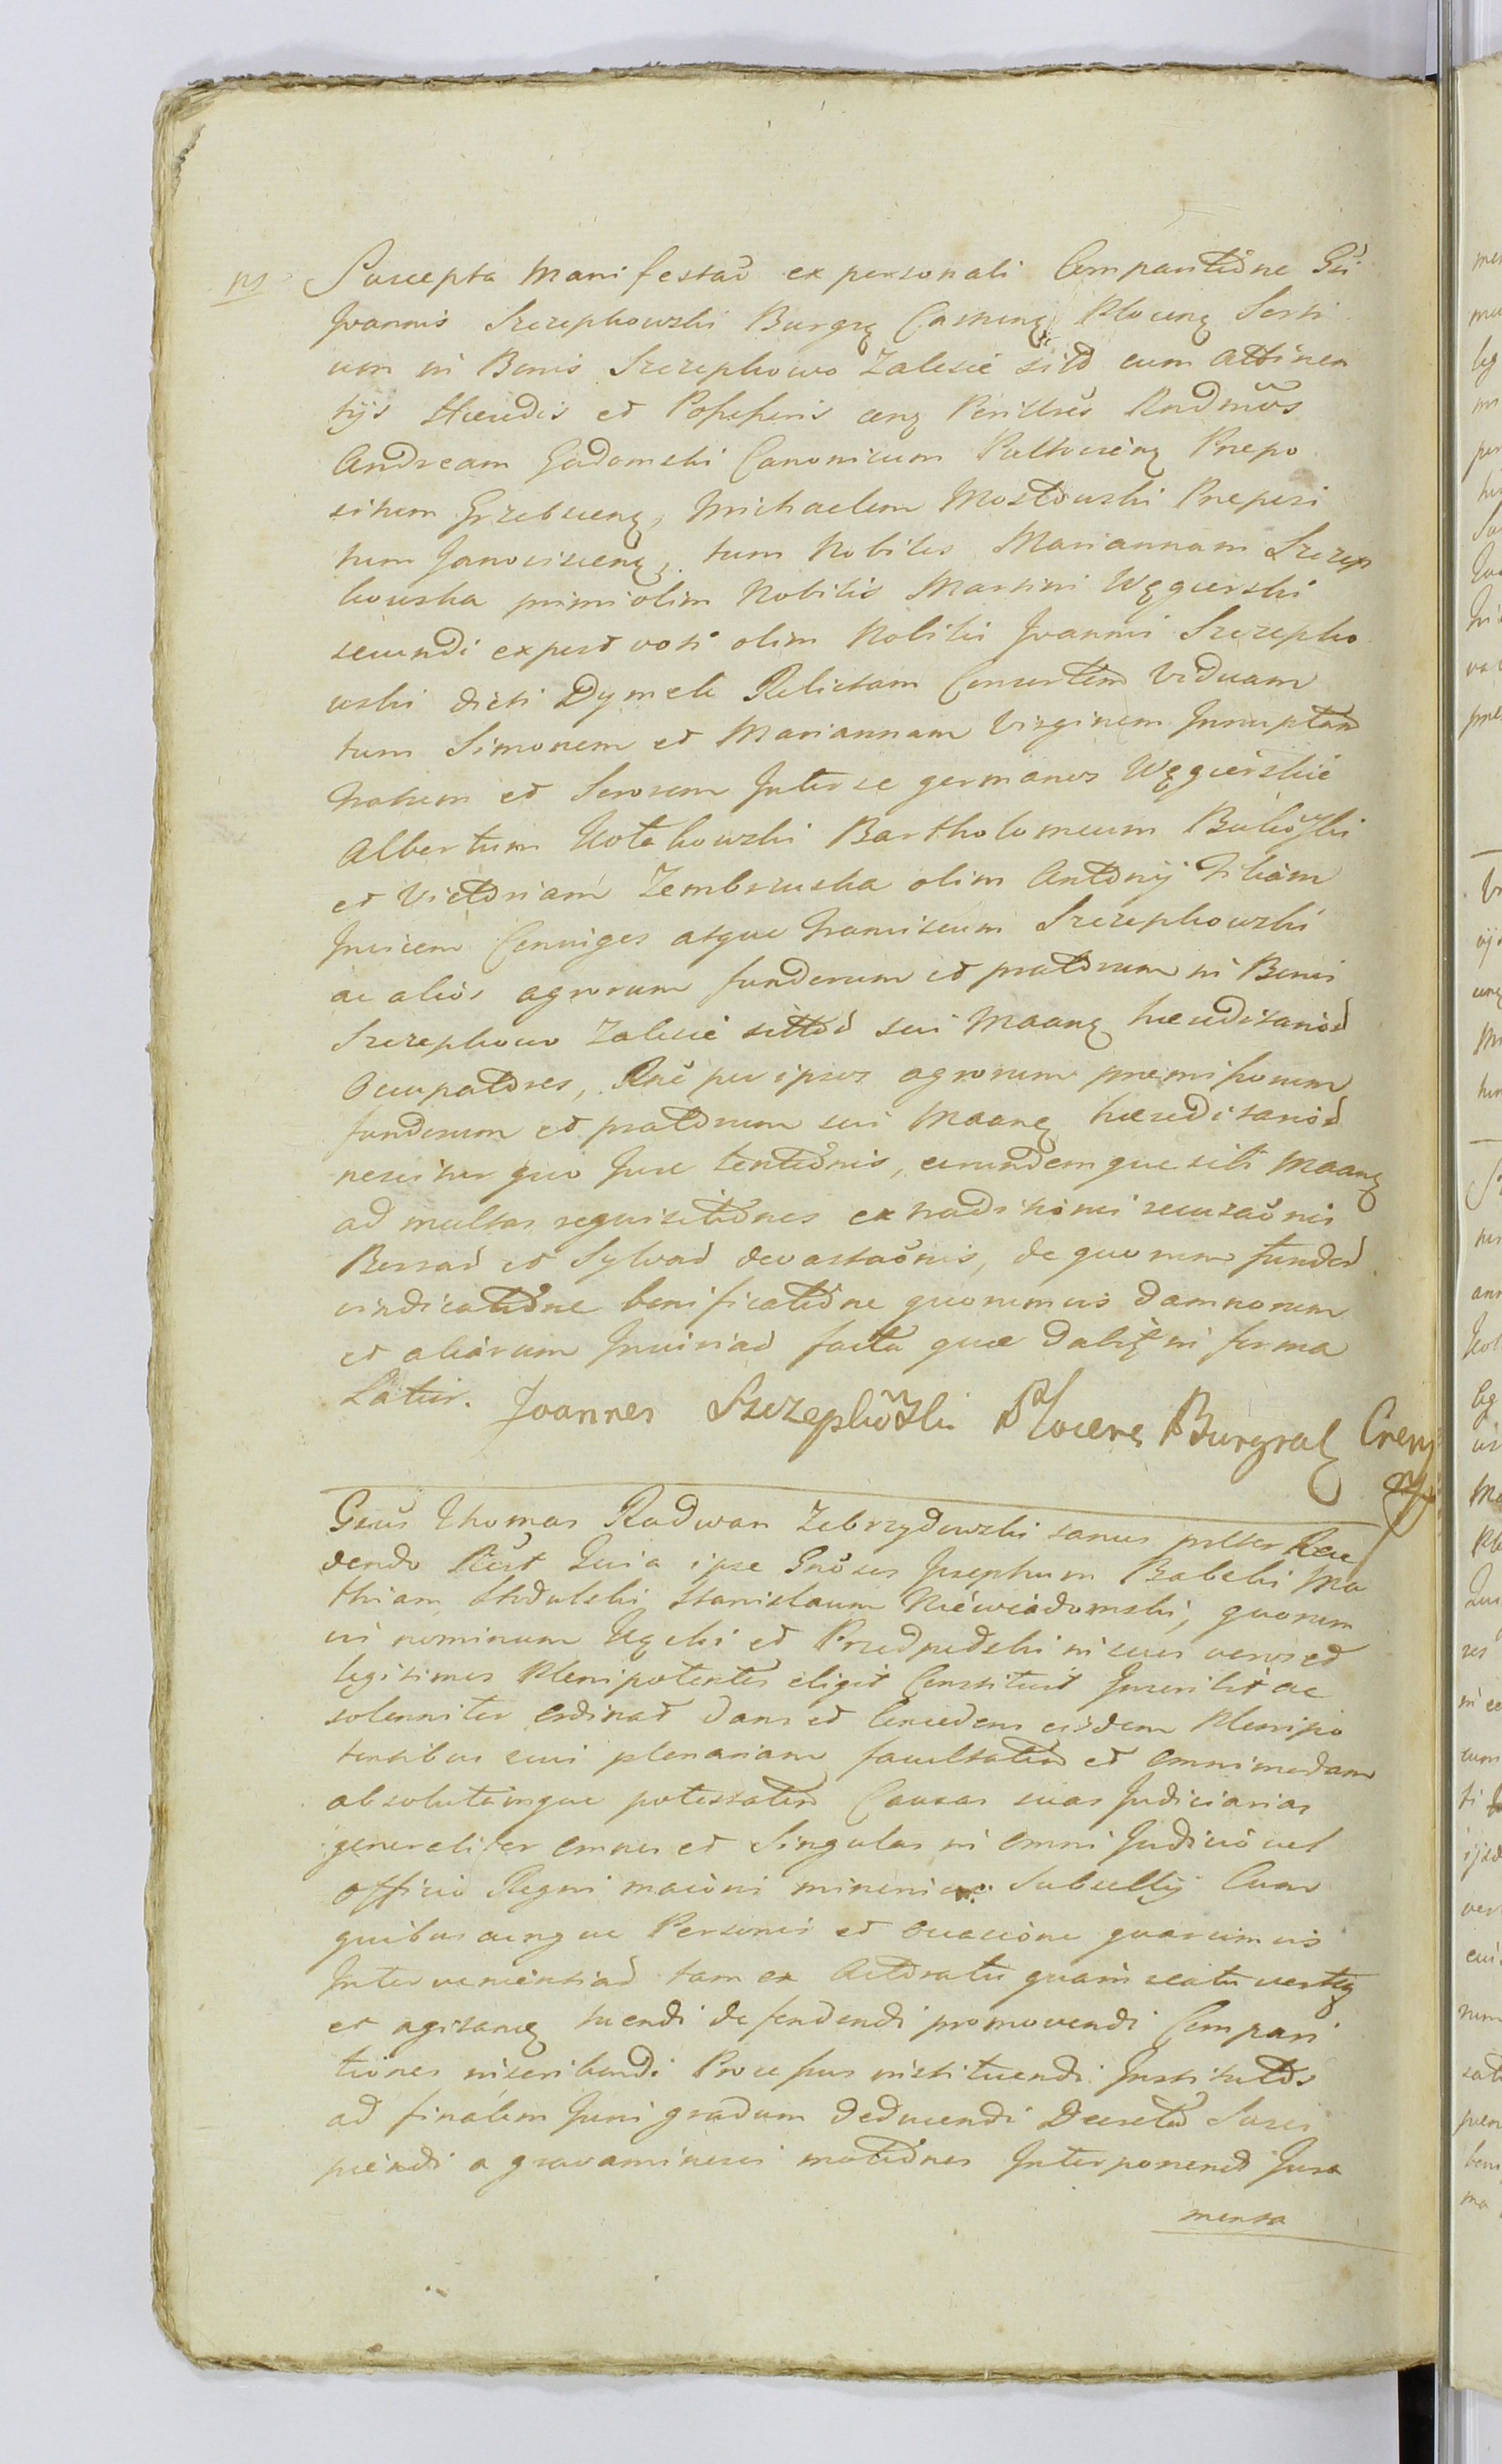 ns Suscepta Manifestaõ ex personali Comparitiõne Gsi
Joannis Szczepkowski Burgrę Castrenę Plocenę Sorti
um in Bonis Szczepkowo Zalesie sitd cum Attinen
tijs Hæredis et Possessoris ctrę Perillres Rndmos
Andream Gadomski Canonicum Pultovienę Prepo
situm Grzebscenę, Michaelem Mostowski Preposi
tum Janoviscenę, tum Nobiles Mariannam Szczep
kowska primi olim Nobilis Martini Węgierski
secundi expost voti olim Nobilis Joannis Szczepko
wski dicti Dymek Relictam Consortem Viduam
tum Simonem et Mariannam Virginem Innuptam
Fratrem et Sororem Inter se germanos Węgierskie
Albertum Kotakowski Bartholomeum Bulkowski
et Victoriam Zembrzuska olim Antonij Filiam
Invicem Coniuges atque Franciscum Szczepkowski
ac alios agrorum fundorum et pratorum in Bonis
Szczepkowo Zalesie sittos sui Maanę hæreditarios
Occupatores, Rne per ipsos agrorum premissorum
fundorum et pratorum sui Maanę hæreditarios
nescitur quo Jure tentiõnis, eorundemque siti Maanę
ad multas requisitiõnes extraditionis recusaõnis
Borrad et Sylvad devastaõnis, de quorum fundod
vindicatiõne bonificatiõne quorumvis damnorum
et aliarum Iniuriad facta quæ dabitę in forma
Latior. Joannes Szczepkowski Plocenę Burgrabę Crenę

Gsus Thomas Radwan Zebrzydowski sanus prster Rece
dendo Rcit Quia ipse Gnosos Josephum Babecki Ma
thiam Stodulski Stanislaum Niewiadomski, quorum
vis nominum Ugeski et Przedpedski in suos veros et
legitimos Plenipotentes eligit Constituit Inscribit ac
solenniter Ordinat Dans et Concedens eisdem Plenipo
tentibus suis plenariam facultatem et omnimodam
absolutamque potestatem Causas suas Judiciarias
generaliter omnes et Singulas in omni Judicio vel
Officio Regni maioris minoris Subsellij Cum
quibuscunque Personis et occasione quarumvis
Intervenientiad tam ex Actoratu quam reatu vertę
et agitanę tuendi defendendi promovendi Compari
tiones inscribendi Processus instituendi Institutos
ad finalem Juris gradum deducendi Decreta Susci
piendi a gravaminosis motiones Interponend Jura
menta